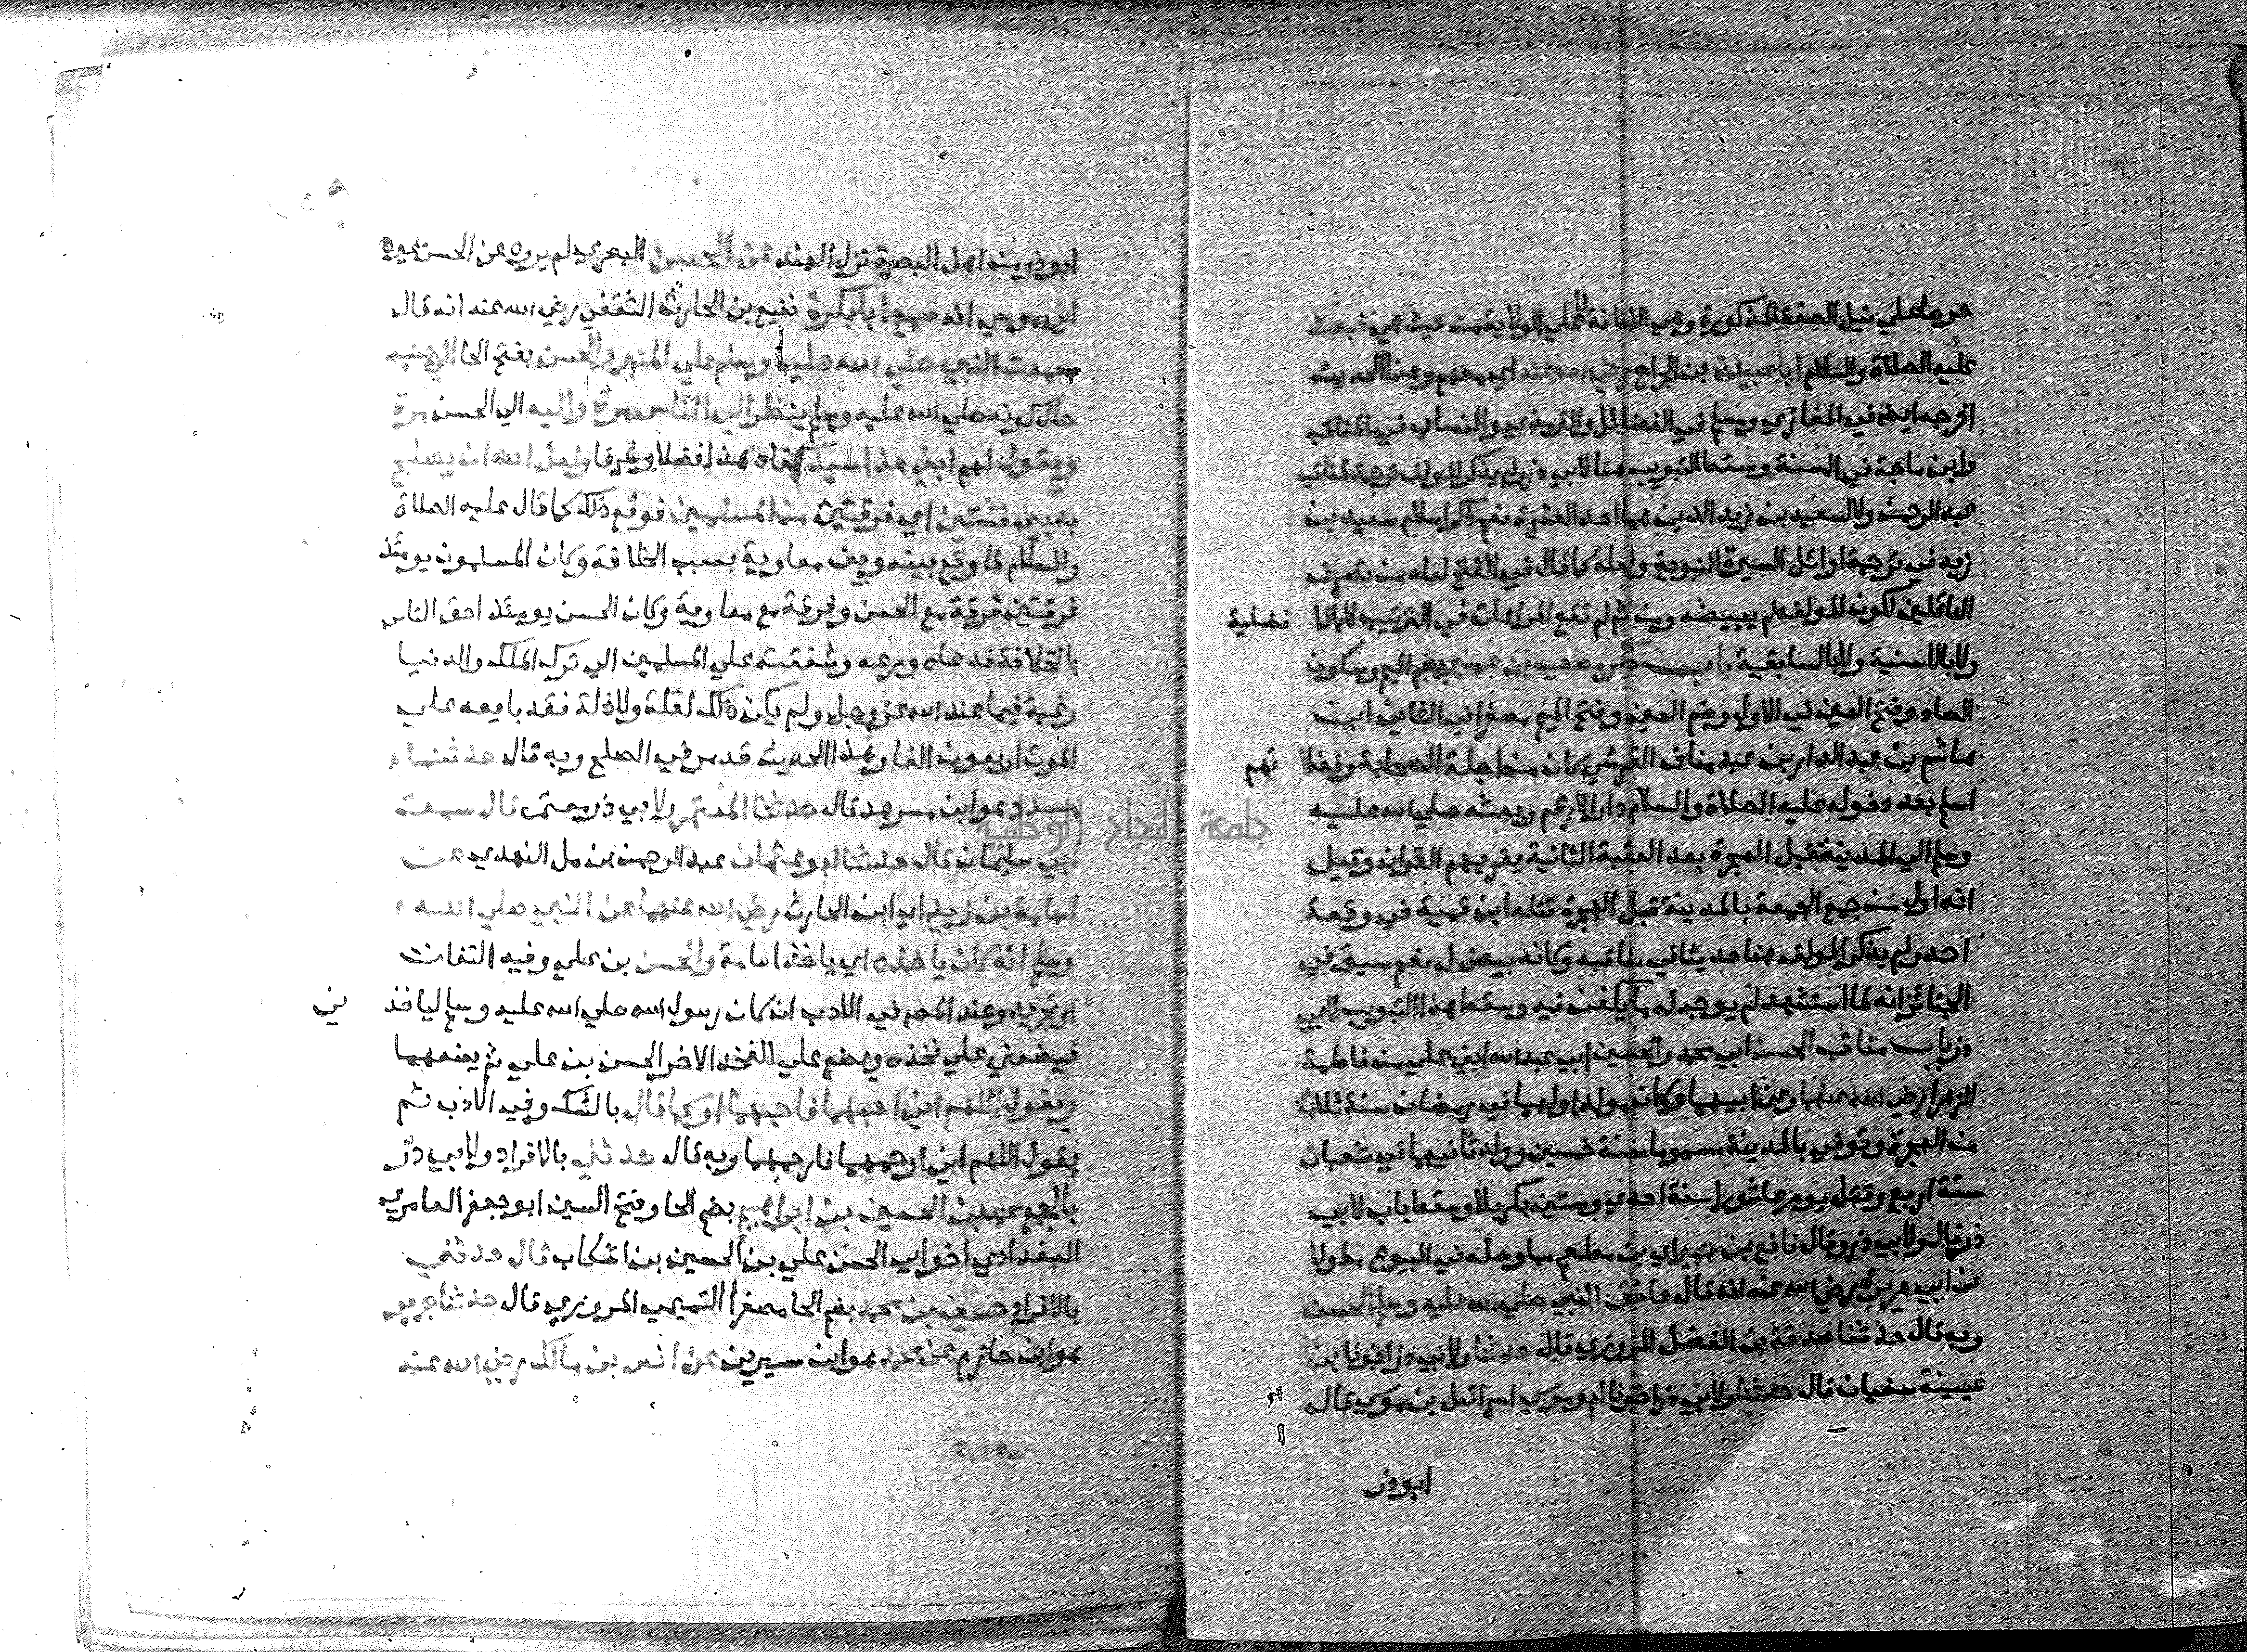 حرصا علي نيل الصفة المذكورة وهي الامانة لا علي الولاية من حيث هي فبعث
عليه الصلاة والسلام ابا عبيدة بن الجراح رضي الله عنه اي معهم وهذا الحديث
اخرجه ايضا في المغازي ومسلم في الفضائل والترمذي والنساي في المناقب
وابن ماجة في السنة وسقط التبويب هنا لابي ذر ولم يذكر المولف ترجمة لمناقب
عبد الرحمن ولا لسعيد بن زيد الذين هما احد العشرة نعم ذكر اسلام سعيد بن
زيد في ترجمة اوائل السيرة النبوية ولعله كما قال في الفتح لعله من تصرف
الناقلين لكون المولف لم يبيضه ومن ثم لم تقع المراعات في الترتيب لا بالا فضلية
ولا بالاسنية ولا بالسابقية باب ذكر مصعب بن عمير بضم الميم وسكون
الصاد وفتح العين في الاول وضم العين وفتح الميم مصغرا في الثاني ابن
هاشم بن عبد الدار بن عبد مناف القرشي كان من اجلة الصحابة وفضلا ئهم
اسلم بعد دخوله عليه الصلاة والسلام دار الارقم وبعثه صلي الله عليه
وسلم الي المدينة قبل الهجرة بعد العقبة الثانية يقريهم القران وقيل
انه اول من جمع الجمعة بالمدينة قبل الهجرة قتله ابن قمية في وقعة
احد ولم يذكر المولف هنا حديثا في مناقبه وكانه بيض له نعم سبق في
الجنائز انه لما استشهد لم يوجد له ما يكفن فيه وسقط هذا التبويب لابي
ذر باب مناقب الحسن ابي محمد والحسين ابي عبد الله ابني علي من فاطمة
الزهرا رضي الله عنها وعن ابيهما وكان مولد اولهما في رمضان سنة ثلاث
من الهجرة وتوفي بالمدينة مسموما سنة خمسين وولد ثانيهما في شعبان
سنة اربع وقتل يوم عاشورا سنة احدي وستين بكربلا وسقط باب لابي
ذر قال ولابي ذر وقال نافع بن جبير اي بن مطعم مما وصله في البيوع مطولا
عن ابي هريرة رضي الله عنه انه قال عانق النبي صلي الله عليه وسلم الحسن
وبه قال حدثنا صدقة بن الفضل المروزي قال حدثنا ولابي ذر اخبرنا ابن
عيينة سفيان قال حدثنا ولابي ذر اخبرنا ابو موسي اسرائيل بن موسي قال
ابو ذر
ابو ذر من اهل البصرة نزل الهند عن الحسن البصري لم يروه عن الحسن غيره
ابي موسي انه سمع ابا بكرة نفيع بن الحارث الثقفي رضي الله عنه انه قال
سمعت النبي صلي الله عليه وسلم علي المنبر والحسن بفتح الحا الي جنبه
حال كونه صلي الله عليه وسلم ينظر الي الناس مرة واليه الي الحسن مرة
ويقول لهم ابني هذا سيد كفاه هذا فضلا وشرفا ولعل الله ان يصلح
به بين فئتين اي فرقتين من المسلمين فوقع ذلك كما قال عليه الصلاة
والسلام لما وقع بينه وبين معاوية بسبب الخلافة وكان المسلمون يومئذ
فرقتين فرقة مع الحسن وفرقة مع معاوية وكان الحسن يومئذ احق الناس
بالخلافة فدعاه ورعه وشفقته علي المسلمين الي ترك الملك والدنيا
رغبة فيما عند الله عز وجل ولم يكن ذلك لقلة ولا ذلة فقد بايعه علي
الموت اربعون الفا وهذا الحديث قد مر في الصلح وبه قال حدثنا
مسدد هو ابن مسرهد قال حدثنا المعتمر ولابي ذر معتمر قال سمعت
ابي سليمان قال حدثنا ابو عثمان عبد الرحمن بن مل النهدي عن
اسامة بن زيد اي ابن الحارث رضي الله عنهما عن النبي صلي الله
وسلم انه كان ياخذه اي ياخذ اسامة والحسن بن علي وفيه التفات
او تجريد وعند المصم في الادب ان كان رسول الله صلي الله عليه وسلم لياخذ ني
فيضعني علي فخذه ويضع علي الفخذ الاخر الحسن بن علي ثم يضمهما
ويقول اللهم اني احبهما فاحبهما او كما قال بالشك وفي الادب ثم
يقول اللهم اني ارحمهما فارحمهما وبه قال حدثني بالافراد ولابي ذر
بالجمع محمد بن الحسين بن ابراهيم بضم الحا وفتح السين ابو جعفر العامري
البغدادي اخو ابي الحسن علي بن الحسين بن اشكاب قال حدثني
بالافراد حسين بن محمد بضم الحا مصغرا التميمي المروزي قال حدثنا جرير
هو ابن حازم عن محمد هو ابن سيرين عن انس بن مالك رضي الله عنه
جامعة النجاح الوطنية